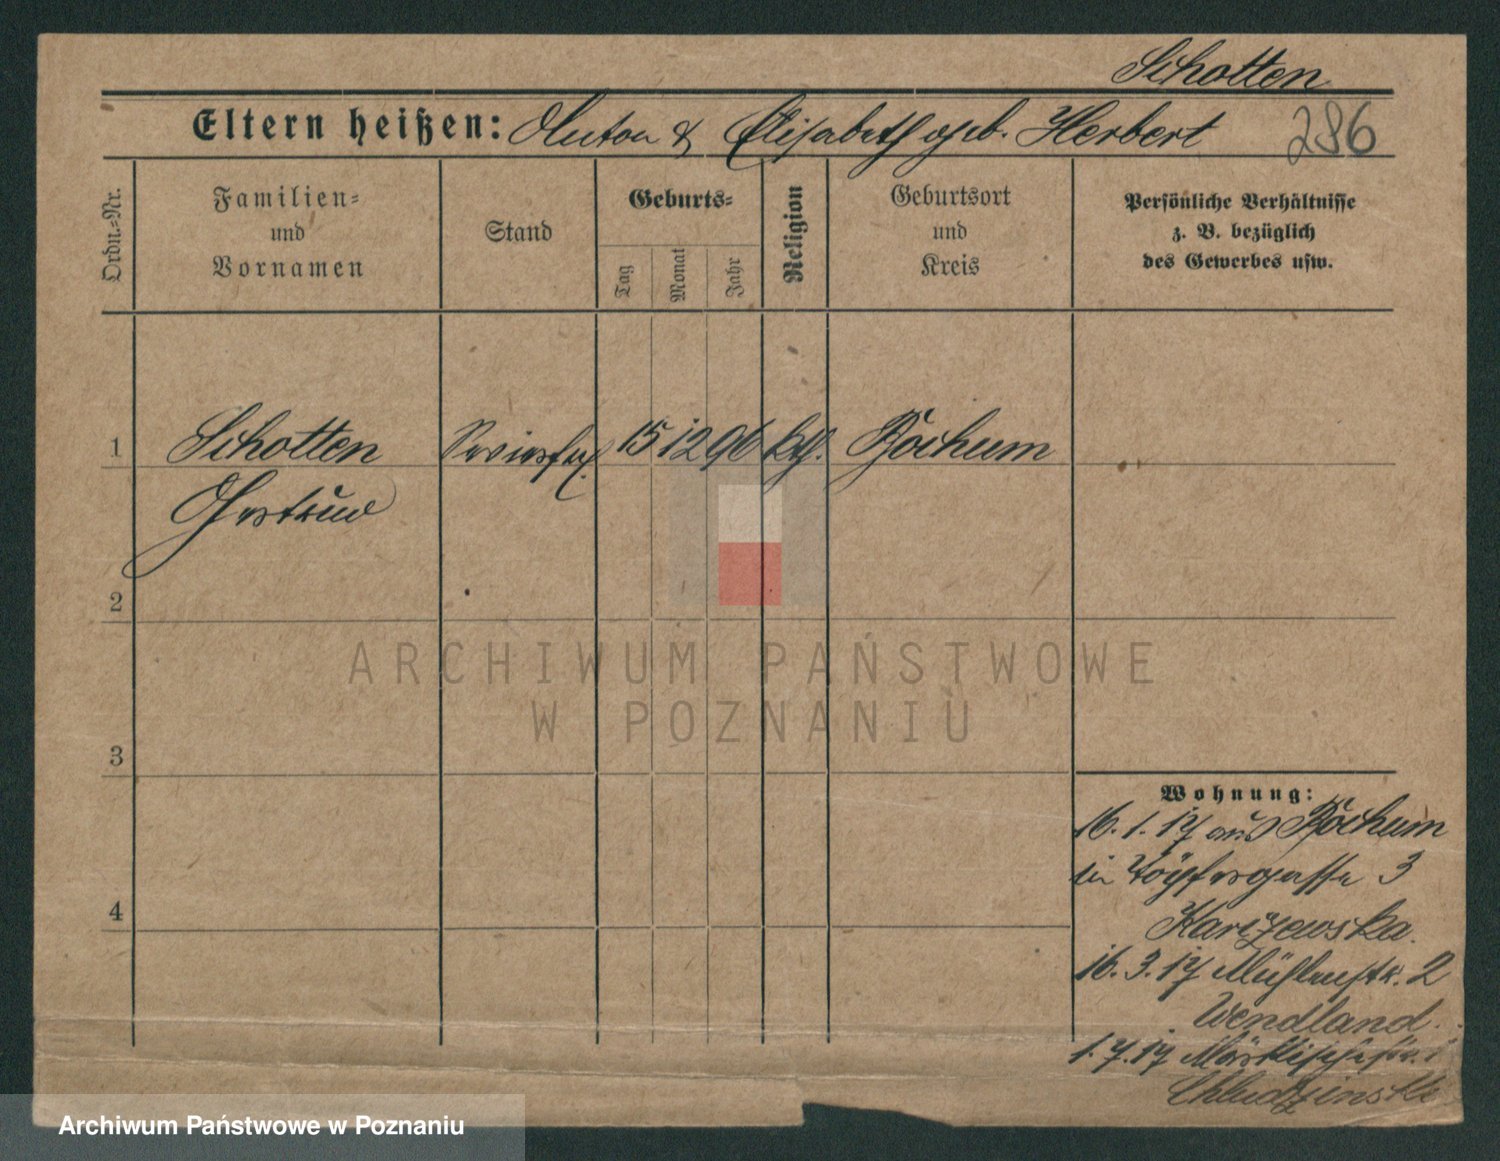 Schotten
Eltern heißen: Anton & Elisabeth geb. Herbert 286
Ordn.=Nr.
Familien=
und
Vornamen
Stand
Geburts=
Tag
Monat
Jahr
Religion
Geburtsort
und
Kreis
Persönliche Verhältnisse
z. B. bezüglich
des Gewerbes usw.
1 Schotten 15 12 96 kth. Bochum
Gertrud
2
3
4
Wohnung:
16.1.17 aus Bochum
in Töpfergasse 3
Karczewska.
16.3.17 Mühlenstr. 2
Wendland.
1.7.17 Märkischestr. 1
Chludzinski
ARCHIWUM PAŃSTWOWE
W POZNANIU
Archiwum Państwowe w Poznaniu